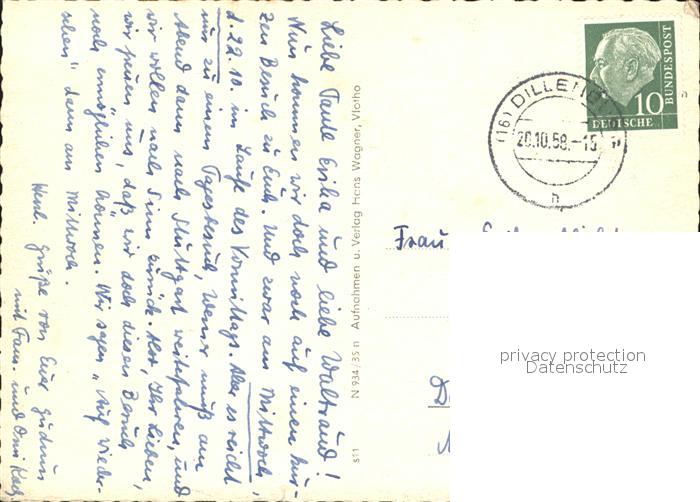 Liebe Tante Erika und liebe Waltraud!
Nun kommen wir doch noch auf einen kur-
zen Besuch zu Euch. Und zwar am Mittwoch,
d. 22. 10. im Laufe des Vormittags. Aber es reicht
nur zu einem Tagesbesuch, Werner muß am
Abend dann nach Stuttgart weiterfahren, und
wir wollen nach Sinn zurück. Aber, Ihr Lieben,
wir freuen uns, daß wir doch diesen Besuch
noch ermöglichen können. Wir sagen "Auf Wieder-
sehen" dann am Mittwoch.
Herzl. Grüße von Eurer Gudrun
mit Fam. und Omi
N 934/35 n Aufnahmen u. Verlag Hans Wagner, Vlotho
511
(16) DILLENB
20.10.58.-15
n
10
DEUTSCHE
BUNDESPOST
Frau
privacy protection
Datenschutz